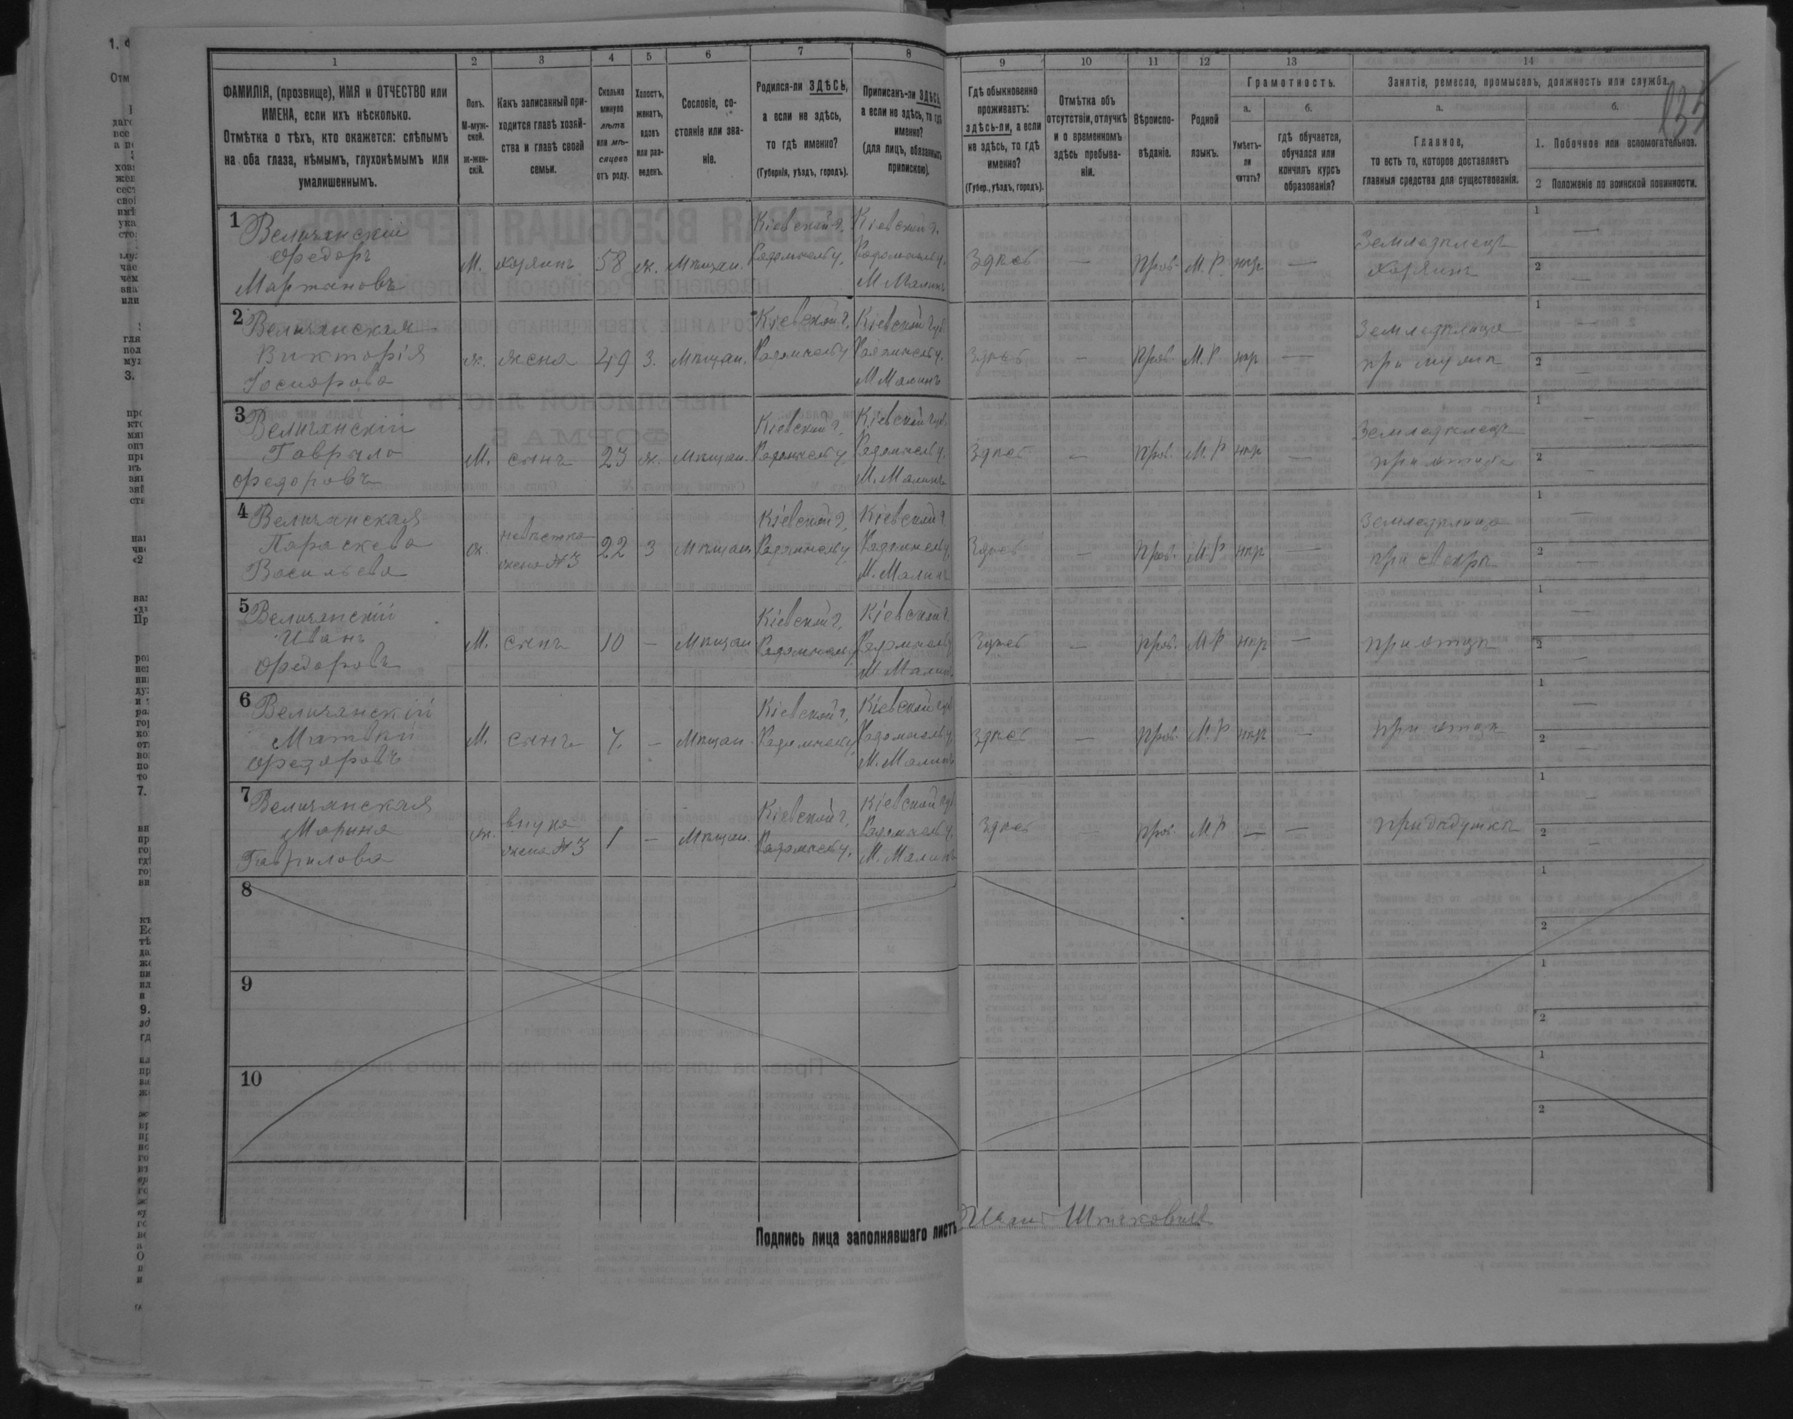 1 2 3 4 5 6 7 8 9 10 11 12 13 14
ФАМИЛІЯ, (прозвище), ИМЯ и ОТЧЕСТВО или
ИМЕНА, если ихъ нѣсколько.
Отмѣтка о тѣхъ, кто окажется: слѣпымъ
на оба глаза, нѣмымъ, глухонѣмымъ или
умалишеннымъ.
Полъ.
М-муж-
ской.
ж-жен-
скій.
Какъ записанный при-
ходится главѣ хозяй-
ства и главѣ своей
семьи.
Сколько
минуло
лѣтъ
или мѣ-
сяцевъ
отъ роду.
Холостъ,
женатъ,
вдовъ
или раз-
веденъ.
Сословіе, со-
стояніе или зва-
ніе.
Родился-ли ЗДѢСЬ,
а если не здѣсь,
то гдѣ именно?
(Губернія, уѣздъ, городъ).
Приписанъ-ли ЗДѢСЬ,
а если не здѣсь, то гдѣ
именно?
(для лицъ, обязанныхъ
припискою).
Гдѣ обыкновенно
проживаетъ:
здѣсь-ли, а если
не здѣсь, то гдѣ
именно?
(Губер., уѣздъ, городъ).
Отмѣтка объ
отсутствіи, отлучкѣ
и о временномъ
здѣсь пребыва-
ніи.
Вѣроиспо-
вѣданіе.
Родной
языкъ.
Грамотность.
а. б.
Умѣетъ-
ли
читать?
гдѣ обучается,
обучался или
кончилъ курсъ
образованія?
Занятіе, ремесло, промыселъ, должность или служба.
а. б.
Главное,
то есть то, которое доставляетъ
главныя средства для существованія.
1. Побочное или вспомогательное.
2 Положеніе по воинской повинности.
135
1 Величанскій
Федоръ
Мартановъ
М. хозяинъ 58 ж. Мѣщан.
Кіевской г.
Радомысльу.
Кіевской г.
Радомысльу.
М Малинъ
Здѣсь — Прав. М. Р нѣр —
Земледѣлецъ
хозяинъ
1 —
2 —
2 Величанская
Викторія
Госпорова
ж. жена 49 З. Мѣщан.
Кіевской г.
Радомысльу
Кіевской губ
Радомысльу.
М Малинъ
Здѣсь — Прав М. Р нѣр —
Земледѣлица
при мужѣ
1 —
2 —
3 Величанскій
Гаврыло
Федоровъ
М. сынъ 23 ж. Мѣщан.
Кіевской г.
Радомысльу.
Кіевской губ
Радомысльу.
М. Малинъ
Здѣсь — Прав. М. Р нѣр —
Земледѣлецъ
при отцѣ
1 —
2 —
4 Величанская
Параскева
Васильева
ж. невѣстка
жена №3 22 З Мѣщан
Кіевской г.
Радомысльу
Кіевской г.
Радомысльу
М. Малинъ
Здѣсь — Прав. М. Р нѣр —
Земледѣлица
при свекрѣ
1 —
2 —
5 Величанскій
Иванъ
Федоровъ
М. сынъ 10 — Мѣщан
Кіевской г.
Радомысльу
Кіевской г.
Радомысльу
М Малинъ
Здѣсь — Прав. М. Р нѣр —
при отцѣ
1 —
2 —
6 Величанскій
Матвѣй
Федоровъ
М. сынъ 7. — Мѣщан
Кіевской г.
Радомысльу
Кіевской губ
Радомысльу
М. Малинъ
Здѣсь — Прав. М. Р нѣр —
при отцѣ
1 —
2 —
7 Величанская
Марина
Гаврилова
ж. внука
жена №3 1 — Мѣщан.
Кіевской г.
Радомысльу.
Кіевской губ
Радомысльу.
М. Малинъ
Здѣсь — Прав. М Р — —
при дѣдушкѣ
1 —
2 —
8
1
2
9
1
2
10
1
2
Подпись лица заполнявшаго листъ